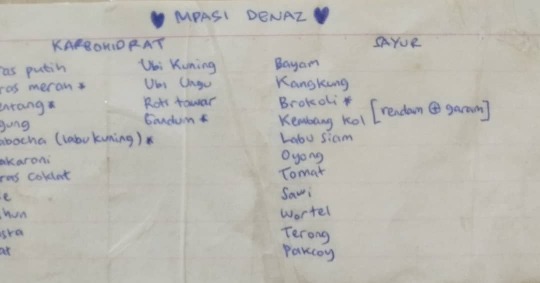 ♥ MPASI DENAZ ♥
KARBOHIDRAT
as putih
ras merah *
entang *
gung
abocha (labu kuning) *
akaroni
ras coklat
e
hun
asta
at
Ubi Kuning
Ubi Ungu
Roti tawar
Gandum *
SAYUR
Bayam
Kangkung
Brokoli *
Kembang kol [rendam ⊕ garam]
Labu siam
Oyong
Tomat
Sawi
Wortel
Terong
Pakcoy